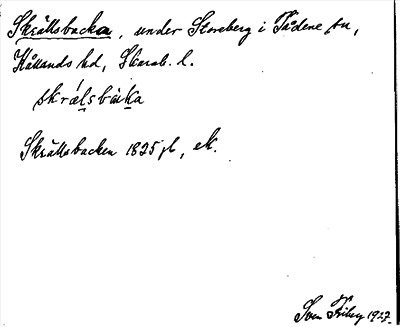 Skrällsbacka, under Storeberg i Tådene sn,
Kållands hd, Skarab. l.
skrälsbàka
Skrällsbacken 1825 jb, ek.
Sven Friberg 1927.